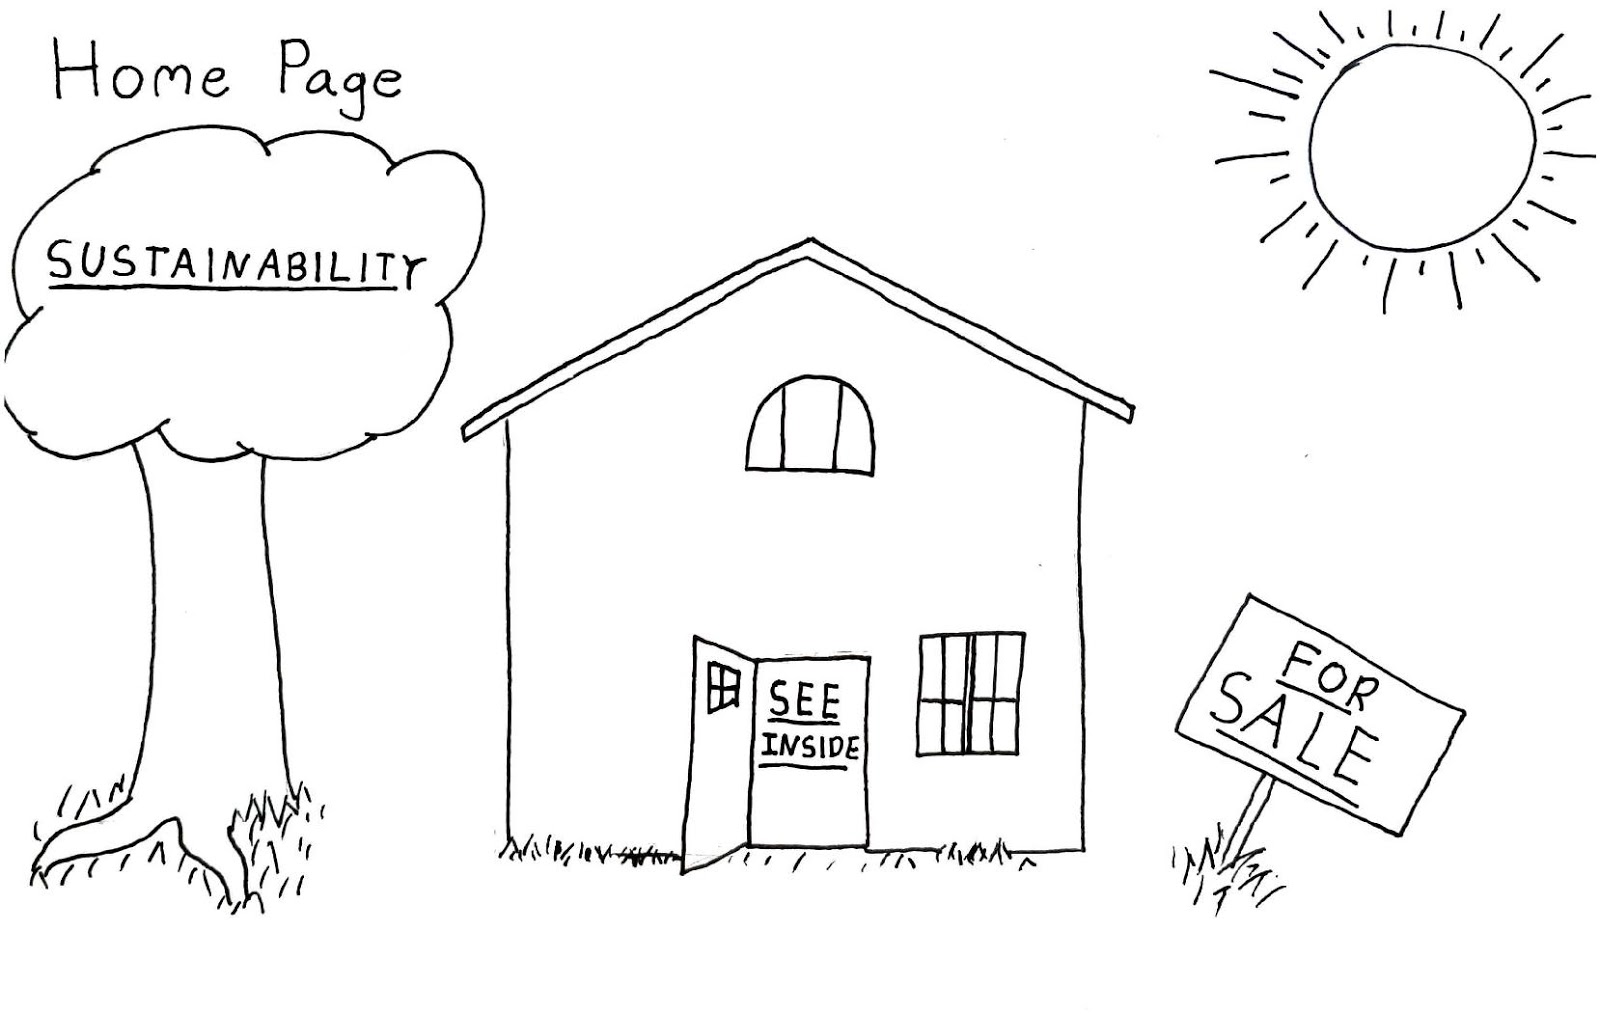 Home Page
SUSTAINABILITY
SEE
INSIDE
FOR
SALE